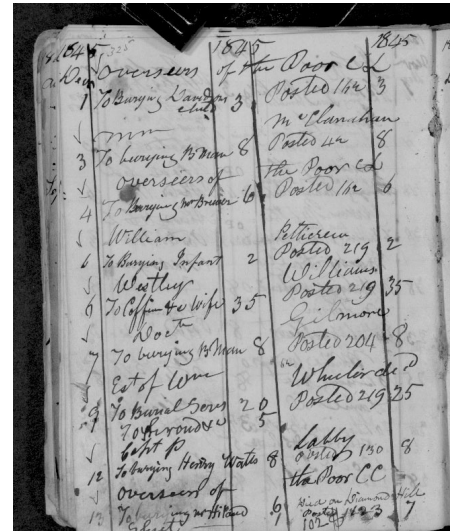 1845 1845 1845
Overseers of the Poor Cd
1 To Burying Davidsons child 3 Posted 162 3
Mm McClanahan
3 To burying B Man 8 Posted 42 8
overseers of the Poor Cd
4 To Burying Mr Brewer 6 Posted 162 6
William Petticrew
6 To Burying Infant 2 Posted 219 2
Westley Williams
6 To Coffin &c Wife 35 Posted 219 35
Doctr Gilmore
7 To burying B Man 8 Posted 204 8
Est of Wm Wheeler decd
9 To Burial Servs 20 Posted 219 25
To 5
Capt P Labby
12 To burying Henry Watts 8 Posted 130 8
overseers of the Poor CC
13 To burying Mr 6 Died on Diamond Hill
Posted 162 3 7